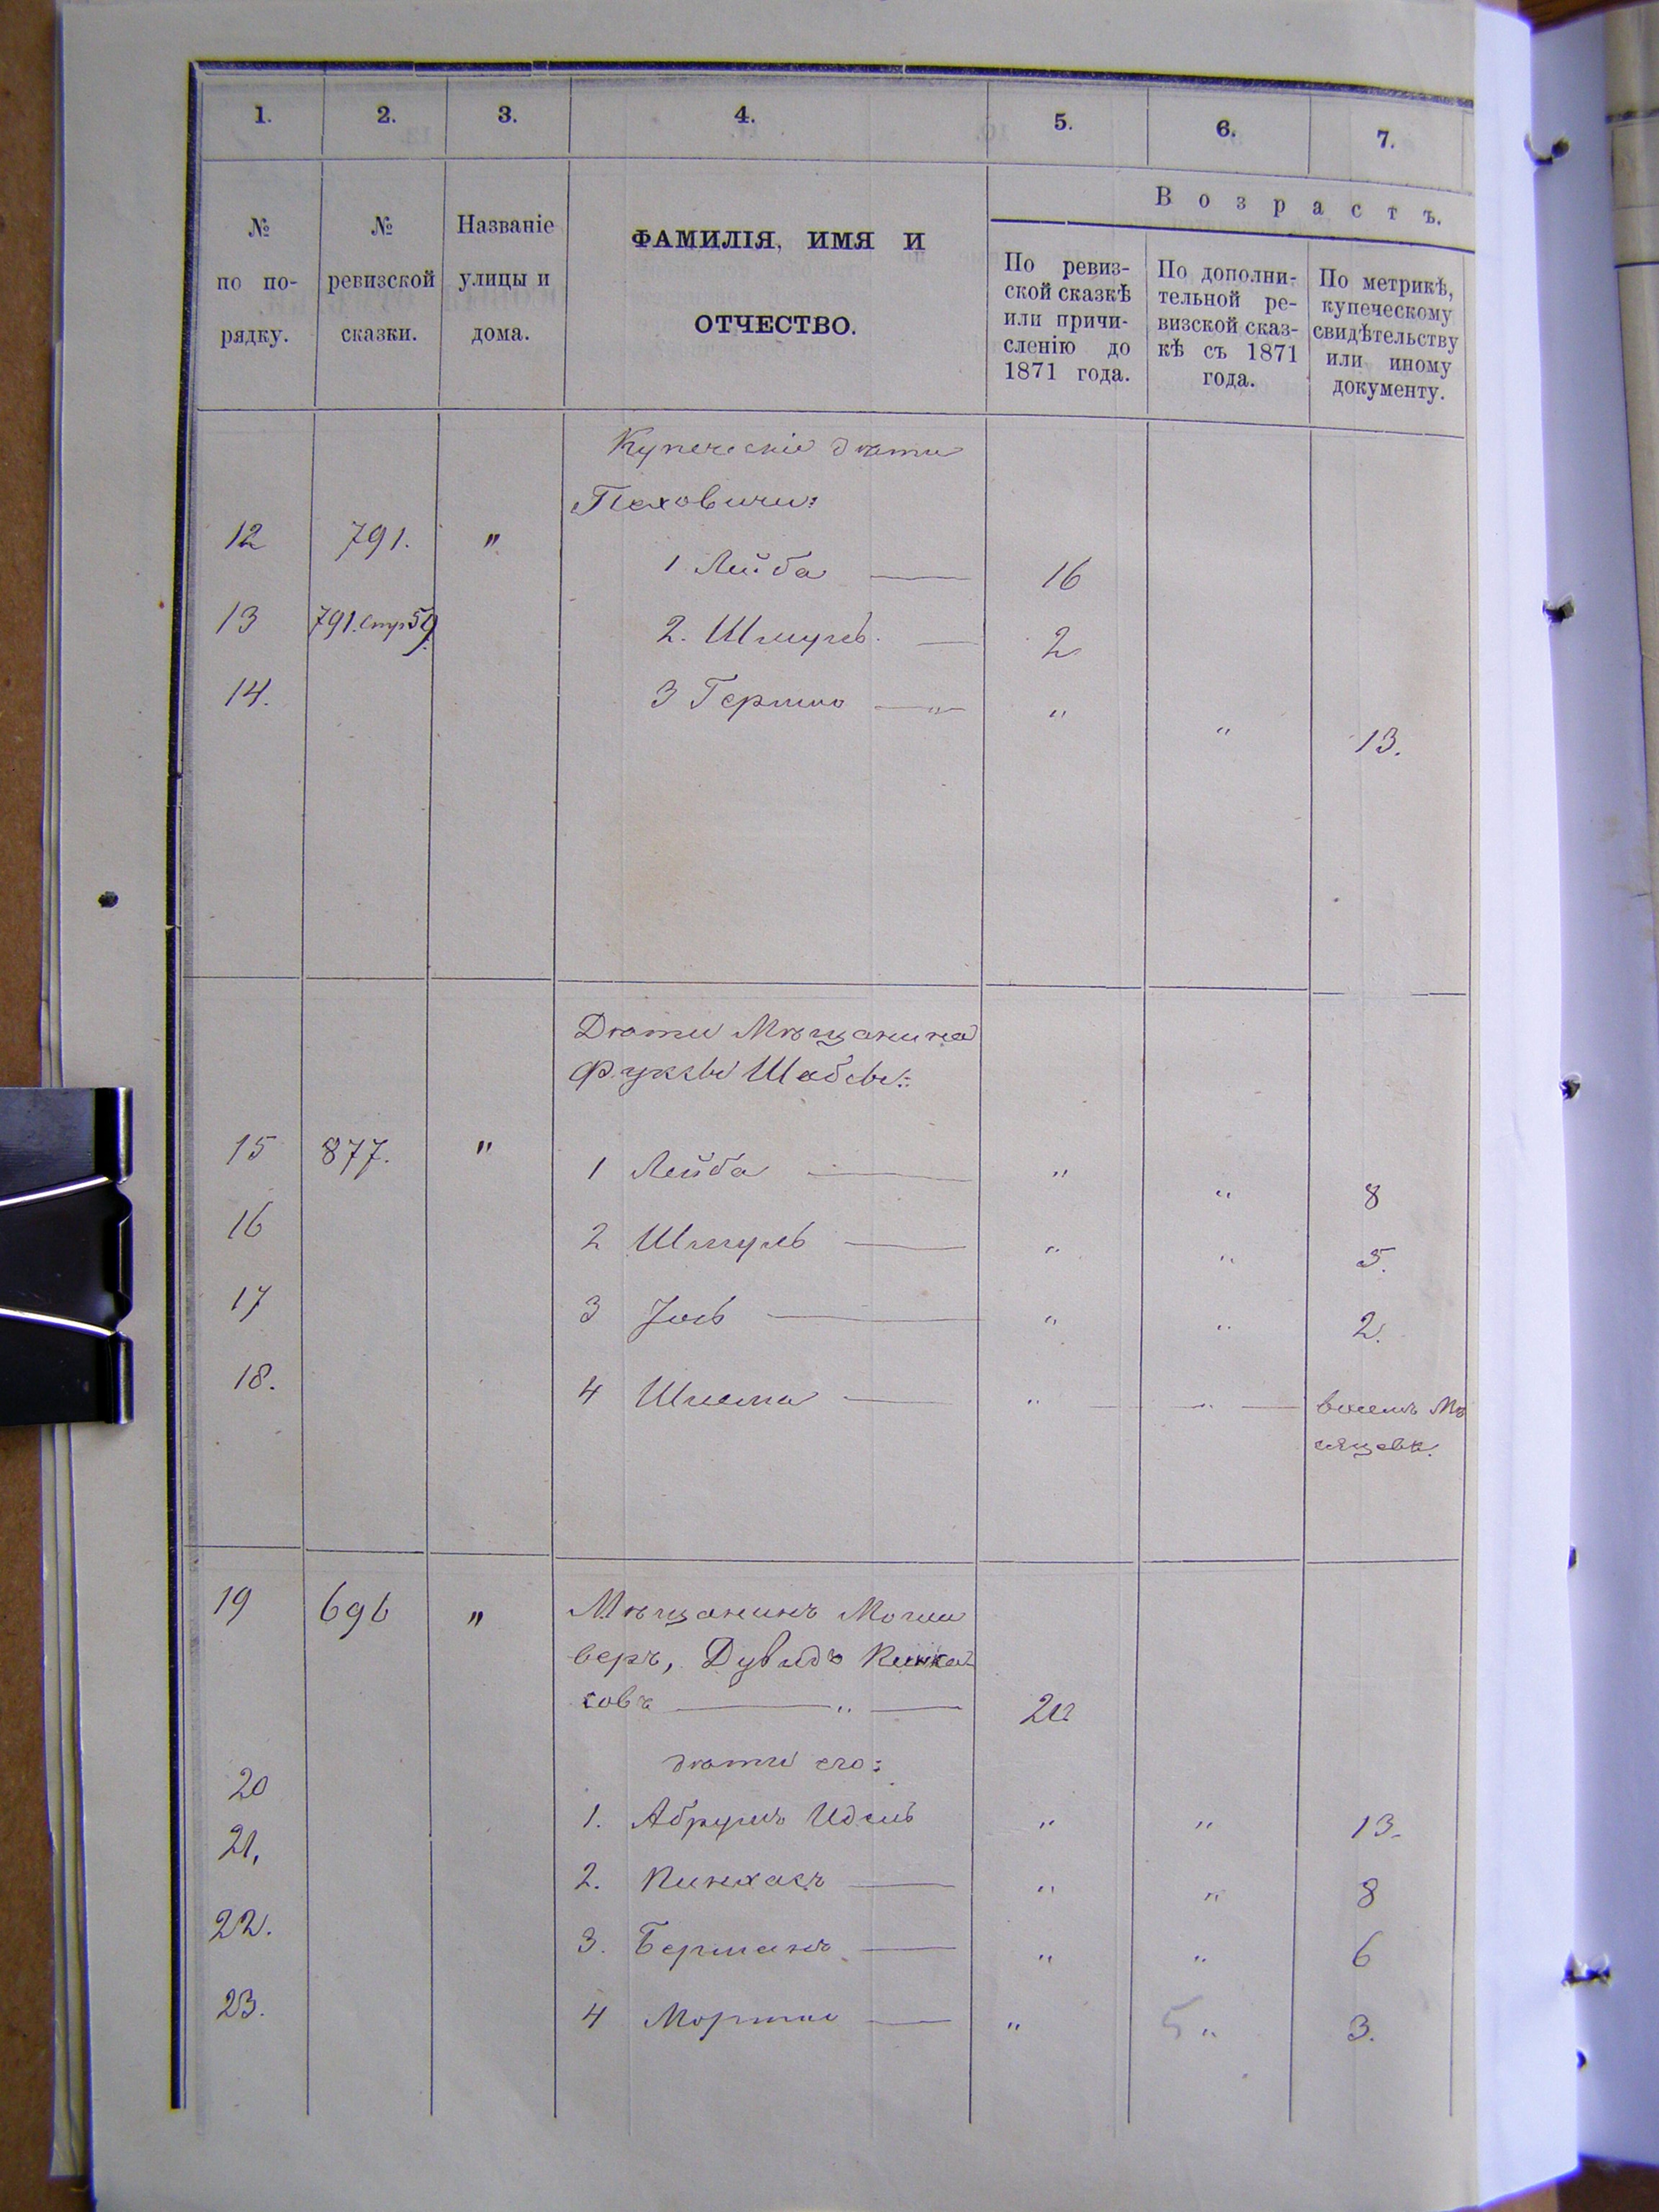 1. 2. 3. 4. 5. 6. 7.
№ по по-рядку.
№ ревизской сказки.
Названіе улицы и дома.
ФАМИЛІЯ, ИМЯ И ОТЧЕСТВО.
Возрастъ.
По ревиз-ской сказкѣ или причи-сленію до 1871 года.
По дополни-тельной ре-визской сказ-кѣ съ 1871 года.
По метрикѣ, купеческому свидѣтельству или иному документу.
Купеческіе дѣти
Пеховичи:
12 791. " 1 Лейба — 16
13 791. стр 59. 2. Шмуль — 2
14. 3 Гершко — " " " 13.
Дѣти Мѣщанина
Фуксы Шабсы:
15 877. " 1 Лейба — " " 8
16 2 Шмуль — " " 5.
17 3 Іось — " " 2.
18. 4 Шлема — " — " — восемь Мѣ
сяцевъ.
19 696 " Мѣщанинъ Моги
леръ, Дувидъ Пинха-
совъ — " —
дѣти его:
20 1. Абрумъ Идель " " 13.
21, 2. Пинхасъ — " " 8
22. 3. Берманъ — " " 6
23. 4 Мортко — " 5 " 3.